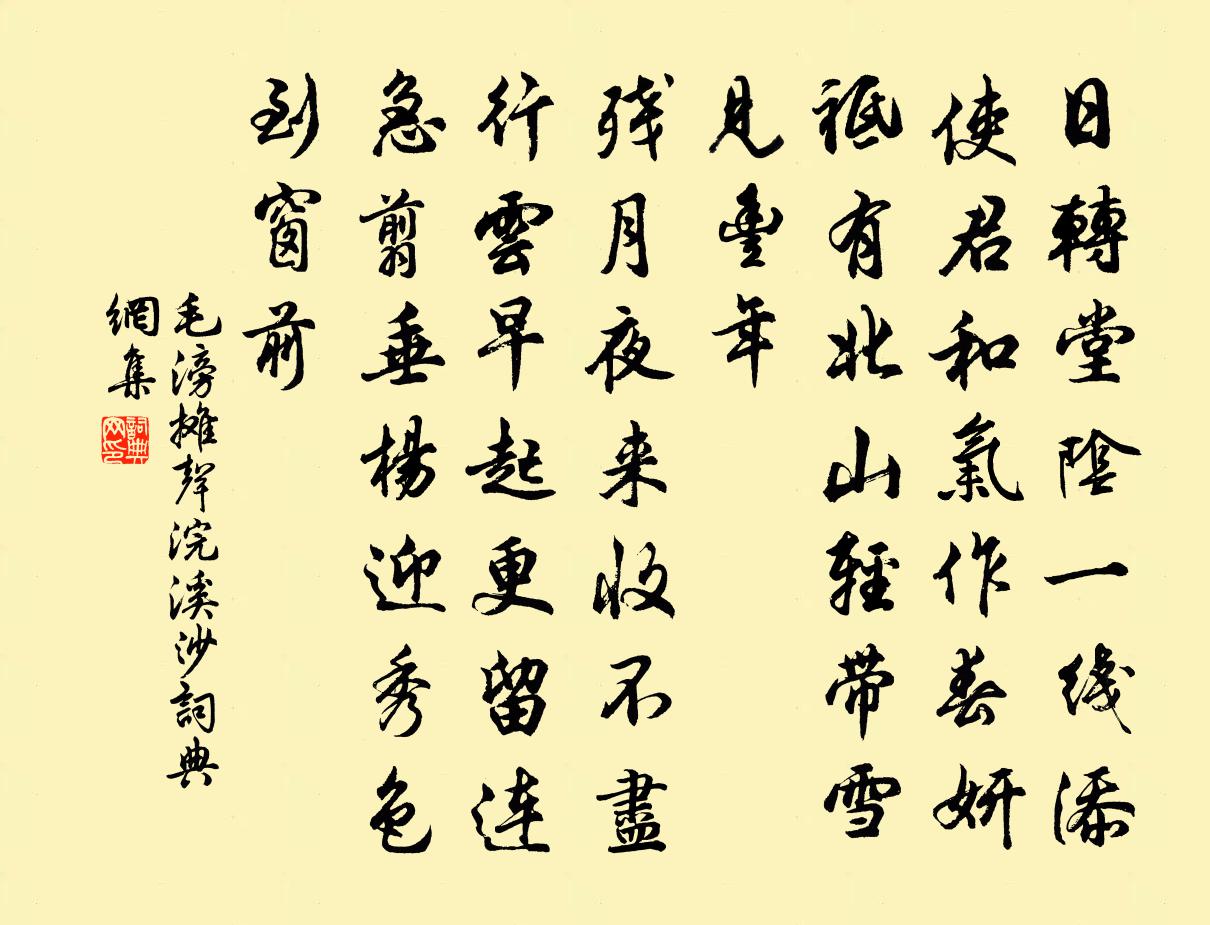 日轉堂陰一线添
使君和氣作春妍
祗有北山輕带雪
見豐年
残月夜来收不盡
行雲早起更留連
急翦垂楊迎秀色
到窗前
毛滂摊聲浣溪沙詞典
網集
詞典
网印